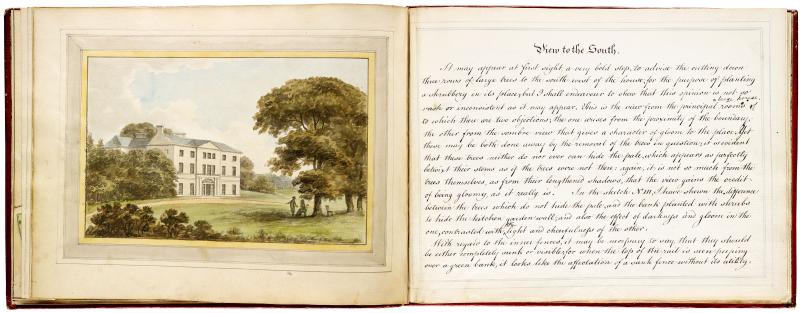 View to the South.
It may appear at first sight a very bold step, to advise the cutting down
three rows of large trees to the south-west of the house, for the purpose of planting
a shrubbery in its place, but I shall endeavour to shew that this opinion is not so
rash or inconsistent as it may appear. This is the view from the principal rooms of
a large house,
to which there are two objections; the one arises from the proximity of the boundary,
the other from the sombre view that gives a character of gloom to the place. Yet
these may be both done away by the removal of the trees in question; it is evident
that these trees neither do nor ever can hide the pale, which appears as perfectly
betwixt their stems as if the trees were not there; again, it is not so much from the
trees themselves, as from their lengthened shadows, that the view gains the credit
of being gloomy, as it really is. In the sketch No. III, I have shewn the difference
between the trees which do not hide the pale, and the bank planted with shrubs
to hide the kitchen garden wall; and also the effect of darkness and gloom in the
one, contrasted with the light and chearfulness of the other.
With regard to the inner fences, it may be necessary to say, that they should
be either completely sunk or visible, for when the top of the rail is seen peeping
over a green bank, it looks like the affectation of a sunk fence without its utility.